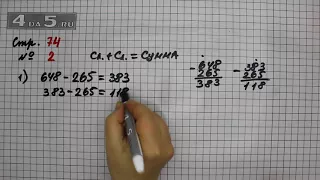 4DA5.RU
Стр. 74
№ 2
Сл. + Сл. = Сумма
1) 648 - 265 = 383
383 - 265 = 118
- 648
265
383
- 383
265
118